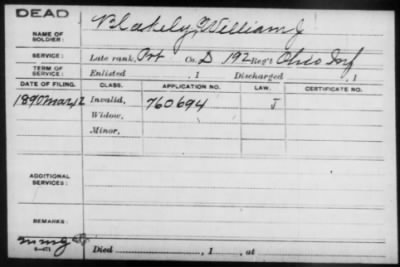 DEAD
NAME OF SOLDIER: Blakely, William J
SERVICE: Late rank, Pvt Co. D 192 Reg't Ohio Inf
TERM OF SERVICE: Enlisted , 1 Discharged , 1
DATE OF FILING. CLASS. APPLICATION NO. LAW. CERTIFICATE NO.
1890 Mar 42 Invalid, 760694 J
Widow,
Minor,
ADDITIONAL SERVICES:
REMARKS:
Died , 1 , at